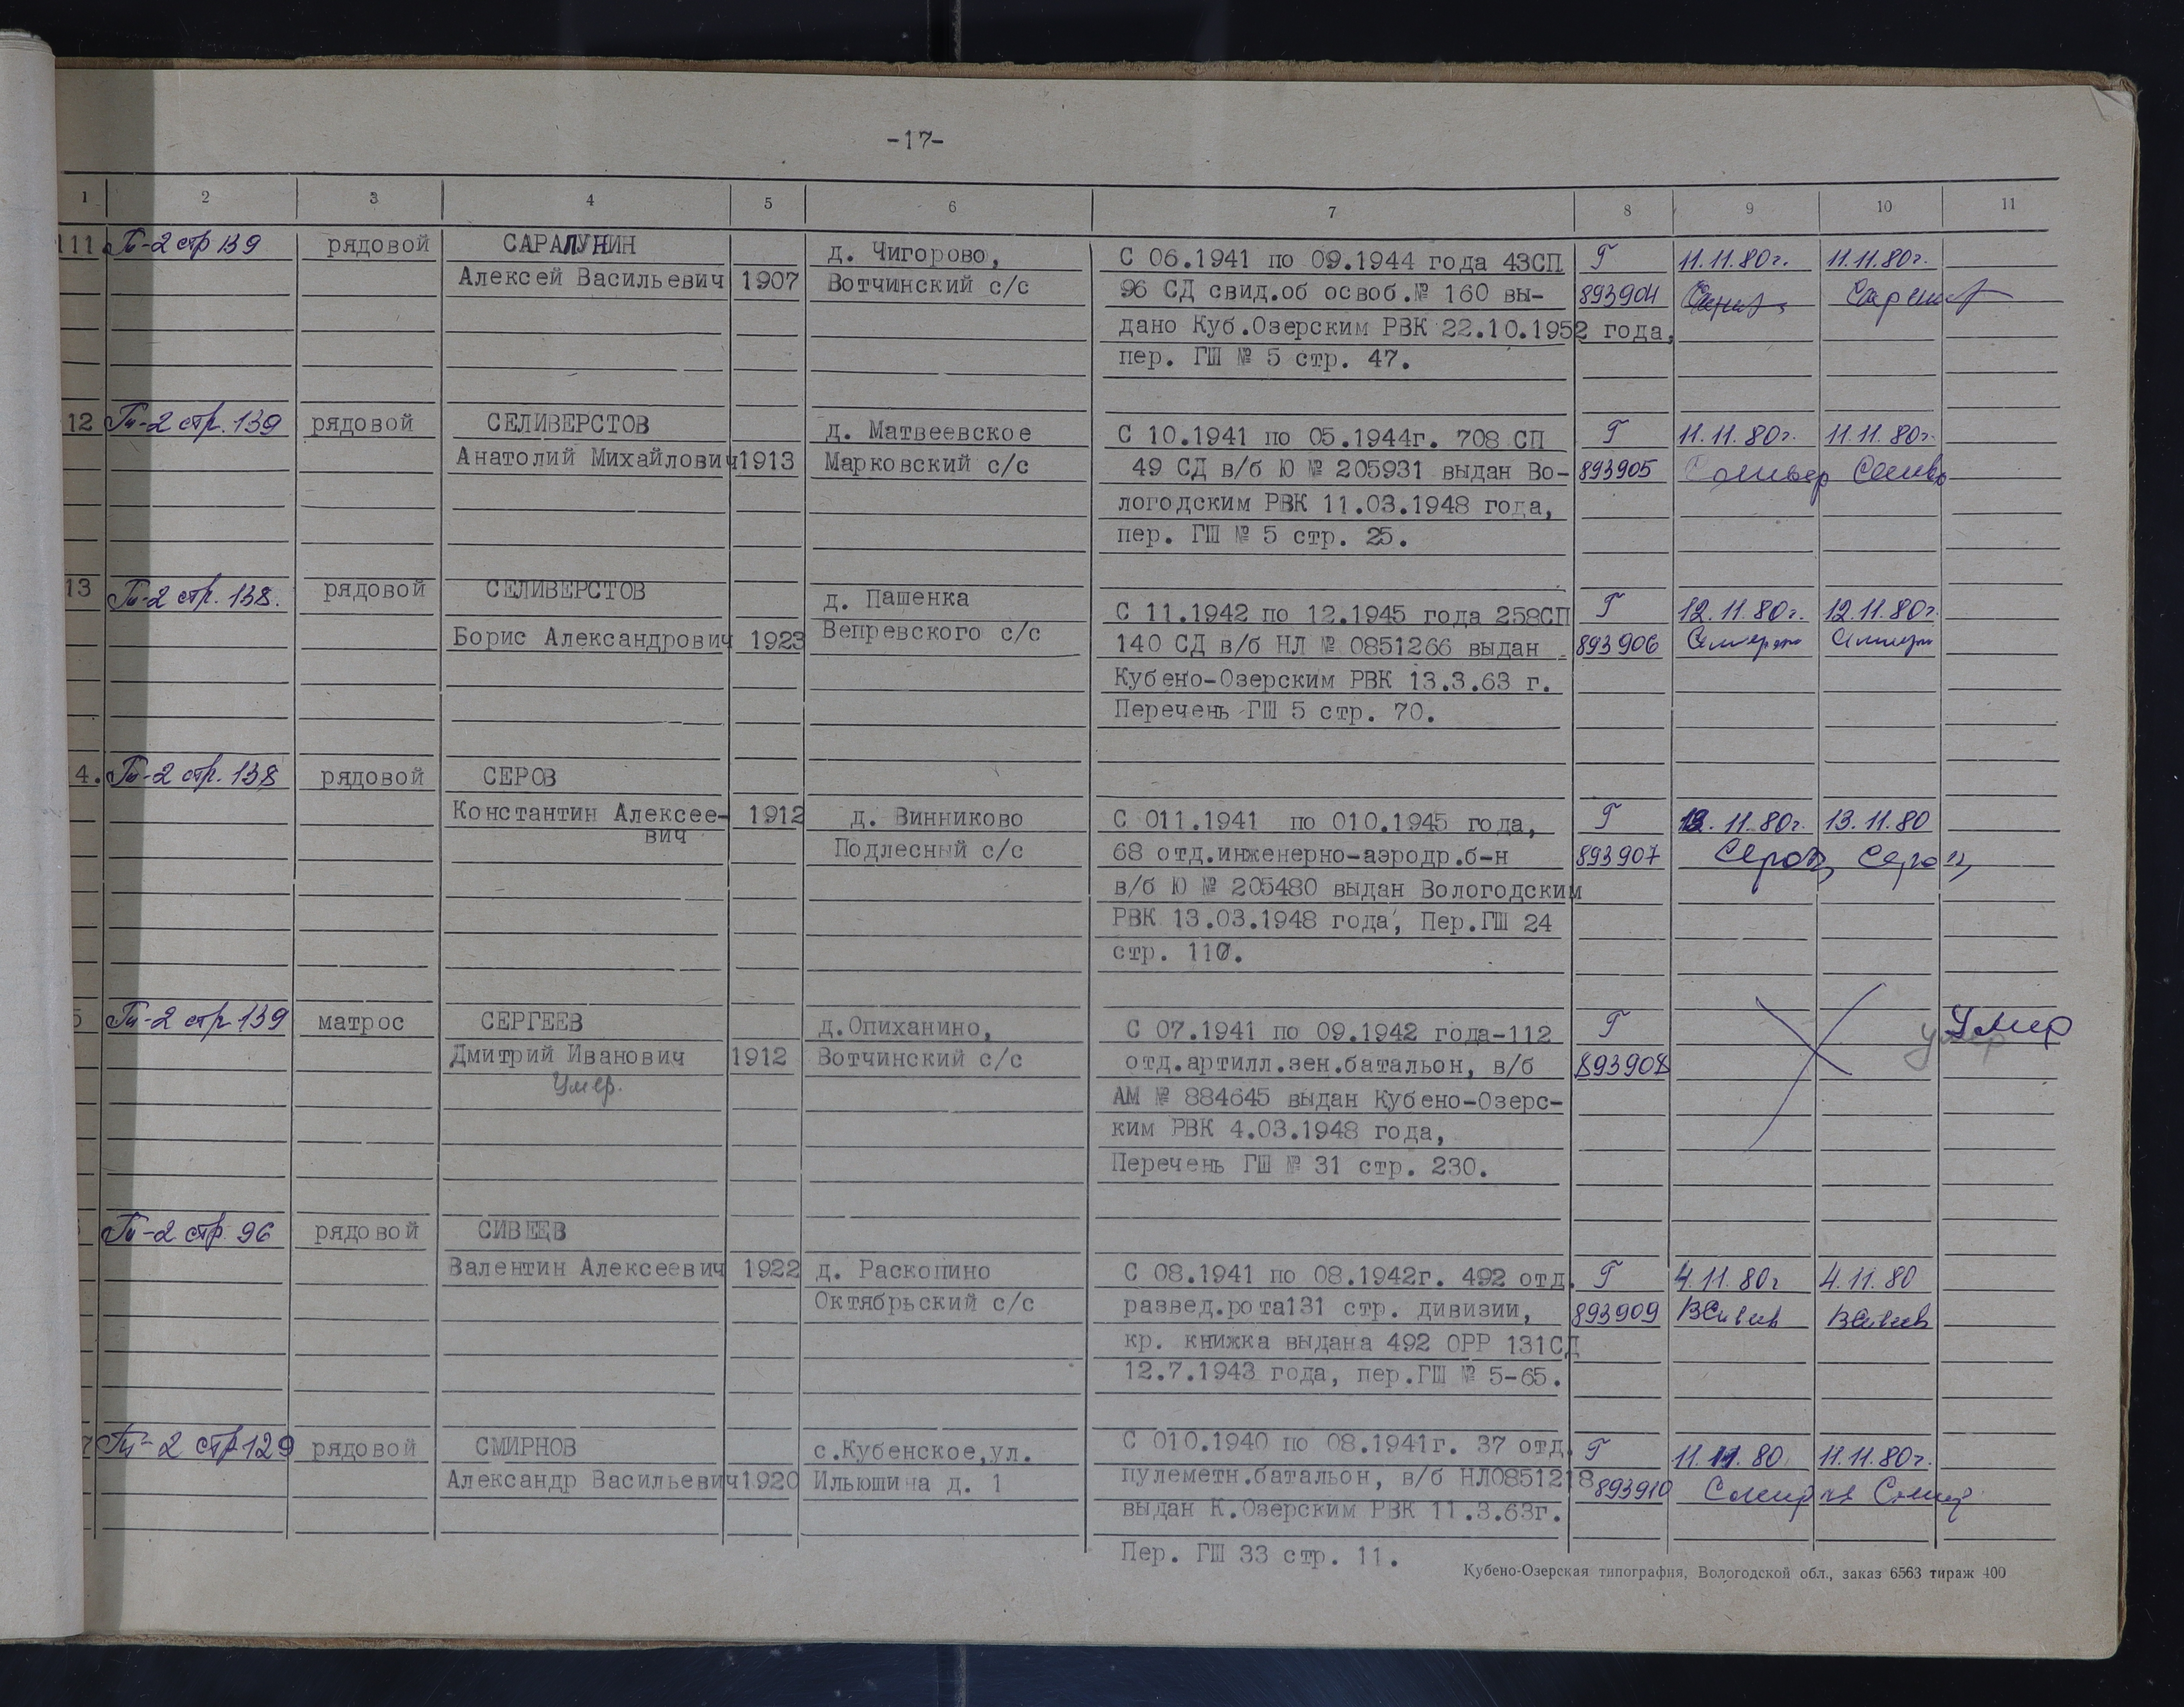 -17-
1 2 3 4 5 6 7 8 9 10 11
111 стр 139 рядовой САРАЛУНИН д. Чигорово, С 06.1941 по 09.1944 года 43СП Г 11.11.80г. 11.11.80г.
Алексей Васильевич 1907 Вотчинский с/с 96 СД свид.об освоб.№ 160 вы- 893904
дано Куб.Озерским РВК 22.10.1952 года,
пер. ГШ № 5 стр. 47.
12 Гп-2 стр. 139 рядовой СЕЛИВЕРСТОВ д. Матвеевское С 10.1941 по 05.1944г. 708 СП Г 11.11.80г. 11.11.80г.
Анатолий Михайлович 1913 Марковский с/с 49 СД в/б Ю № 205931 выдан Во- 893905
логодским РВК 11.03.1948 года,
пер. ГШ № 5 стр. 25.
13 Гп-2 стр. 138. рядовой СЕЛИВЕРСТОВ д. Пашенка С 11.1942 по 12.1945 года 258СП Г 12.11.80г. 12.11.80г.
Борис Александрович 1923 Вепревского с/с 140 СД в/б НЛ № 0851266 выдан 893906
Кубено-Озерским РВК 13.3.63 г.
Перечень ГШ 5 стр. 70.
4. Гп-2 стр. 138 рядовой СЕРОВ
Константин Алексее- 1912 д. Винниково С 011.1941 по 010.1945 года, Г 13.11.80г. 13.11.80
вич Подлесный с/с 68 отд.инженерно-аэродр.б-н 893907 Серов Серов
в/б Ю № 205480 выдан Вологодским
РВК 13.03.1948 года, Пер.ГШ 24
стр. 110.
5 Гп-2 стр 139 матрос СЕРГЕЕВ д.Опиханино, С 07.1941 по 09.1942 года-112 Г умер Умер
Дмитрий Иванович 1912 Вотчинский с/с отд.артилл.зен.батальон, в/б 893908
Умер. АМ № 884645 выдан Кубено-Озерс-
ким РВК 4.03.1948 года,
Перечень ГШ № 31 стр. 230.
Гп-2 стр. 96 рядовой СИВЕЕВ
Валентин Алексеевич 1922 д. Раскопино С 08.1941 по 08.1942г. 492 отд. Г 4.11.80г 4.11.80
Октябрьский с/с развед.рота131 стр. дивизии, 893909 ВСивеев ВСивеев
кр. книжка выдана 492 ОРР 131СД
12.7.1943 года, пер.ГШ № 5-65.
7 Гп-2 стр129 рядовой СМИРНОВ с.Кубенское,ул. С 010.1940 по 08.1941г. 37 отд. Г 11.11.80 11.11.80г.
Александр Васильевич 1920 Ильюшина д. 1 пулеметн.батальон, в/б НЛ0851218 893910
выдан К.Озерским РВК 11.3.63г.
Пер. ГШ 33 стр. 11.
Кубено-Озерская типография, Вологодской обл., заказ 6563 тираж 400